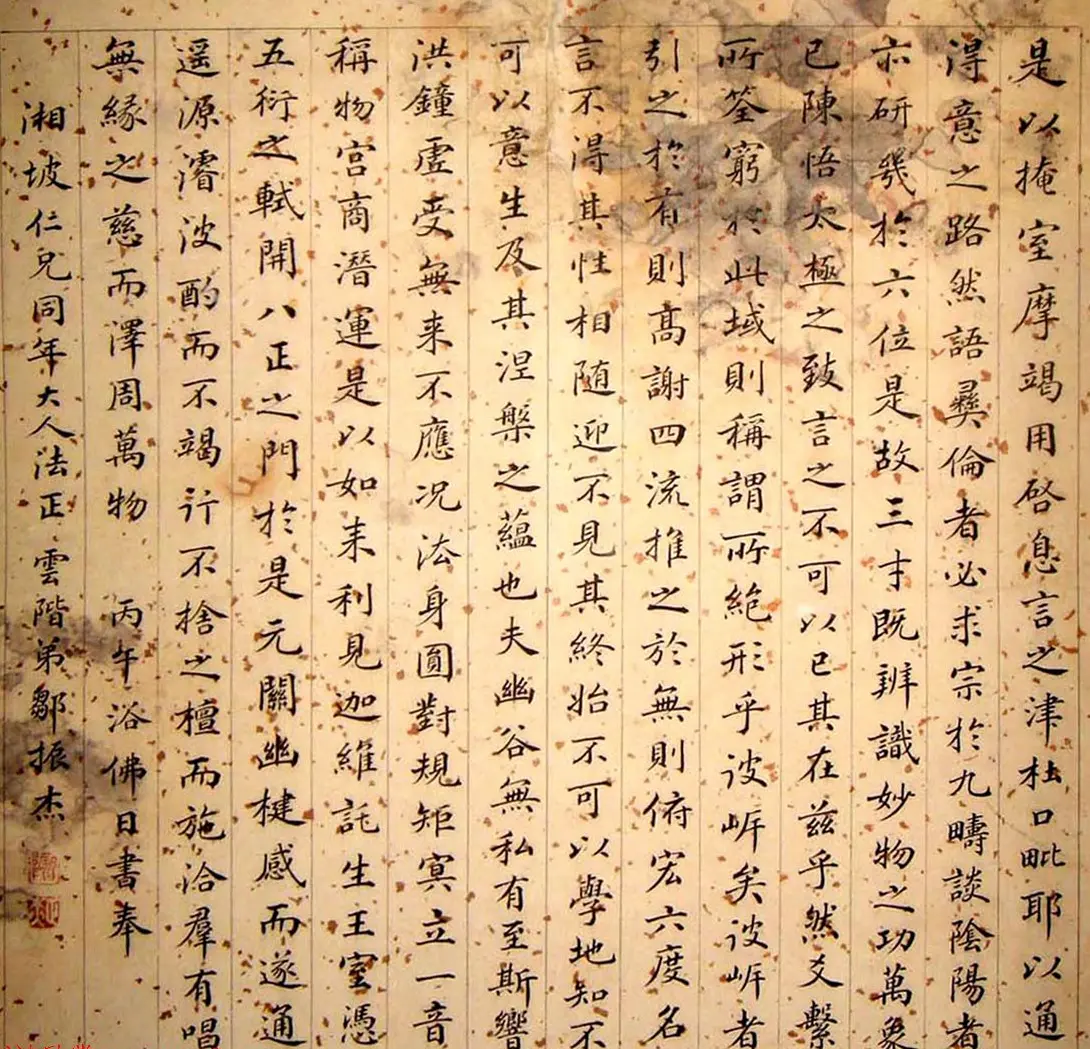 是以掩室摩竭用啓息言之津杜口毗耶以通
得意之路然語彞倫者必求宗於九疇談陰陽者
亦研幾於六位是故三才既辨識妙物之功萬象
已陳悟太極之致言之不可以已其在兹乎然爻繫
所筌窮於此域則稱謂所絶形乎彼岸矣彼岸者
引之於有則高謝四流推之於無則俯宏六度名
言不得其性相随迎不見其終始不可以學地知不
可以意生及其涅槃之蘊也夫幽谷無私有至斯響
洪鐘虚受無来不應况法身圓對規矩冥立一音
稱物宫商潛運是以如来利見迦維託生王室憑
五衍之軾開八正之門於是元關幽楗感而遂通
遥源濬波酌而不竭行不捨之檀而施洽羣有唱
無緣之慈而澤周萬物 丙午浴佛日書奉
湘坡仁兄同年大人法正 雲階弟鄒振杰